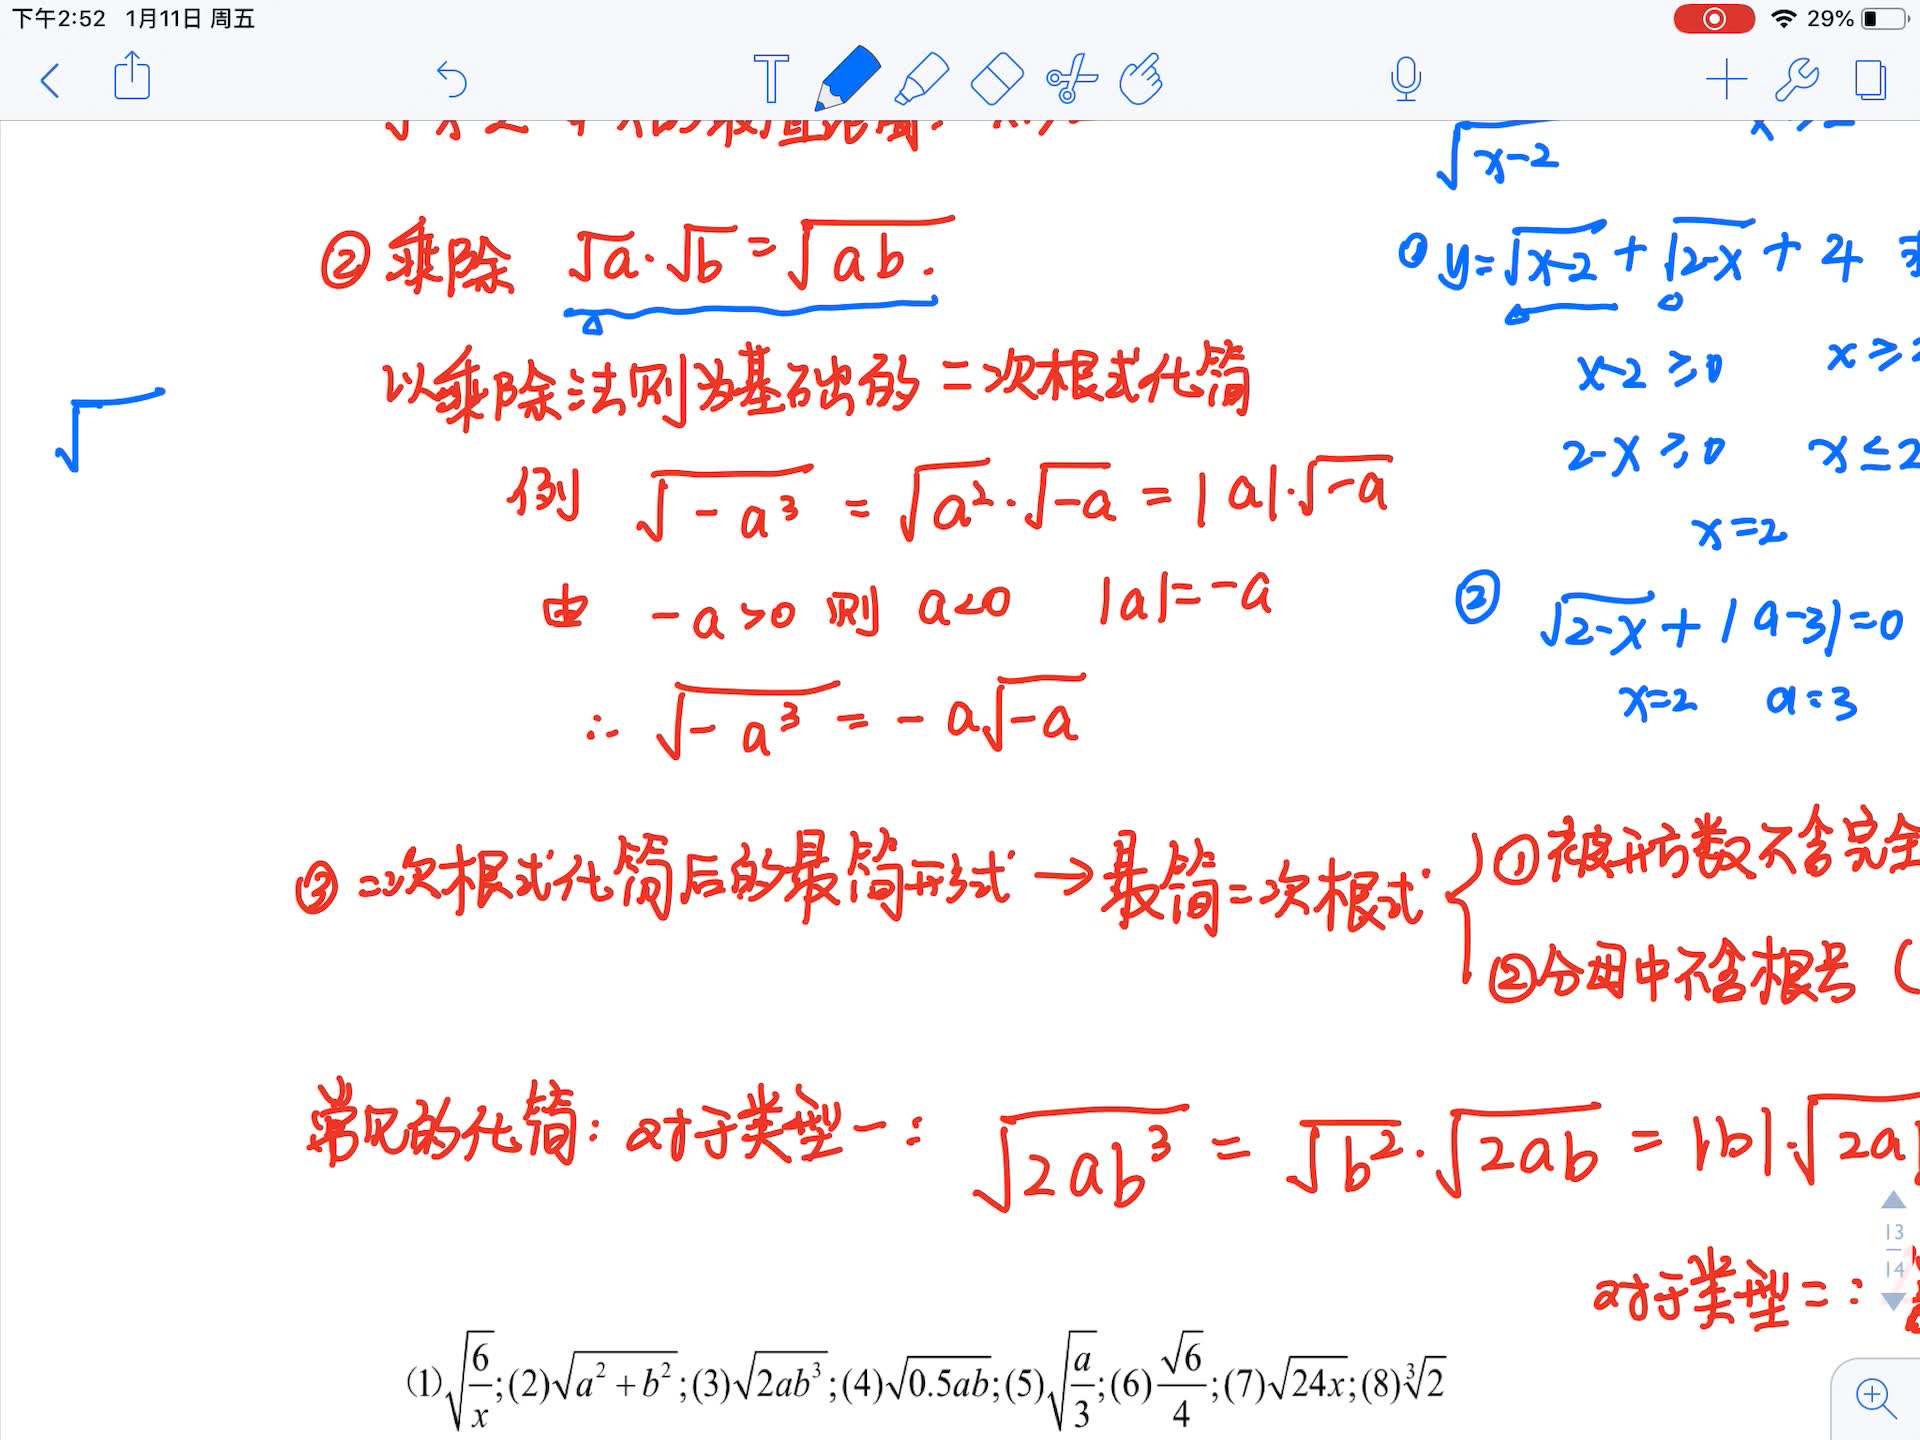 下午2:52 1月11日 周五
29%
T
√x-2
② 乘除 √a·√b=√ab.
① y=√x-2+√2-x+4
以乘除法则为基础的二次根式化简
x-2≥0 x≥2
√
例 √-a³ = √a²·√-a = |a|·√-a
2-x≥0 x≤2
x=2
由 -a>0 则 a<0 |a|=-a
② √2-x+|a-3|=0
x=2 a=3
∴ √-a³ = -a√-a
③ 二次根式化简后的最简形式→最简二次根式
①被开方数不含完全
②分母中不含根号(
常见的化简: 对于类型一: √2ab³ = √b²·√2ab = |b|·√2a
13
14
对于类型二:
(1)√6/x;(2)√a²+b²;(3)√2ab³;(4)√0.5ab;(5)√a/3;(6)√6/4;(7)√24x;(8)³√2